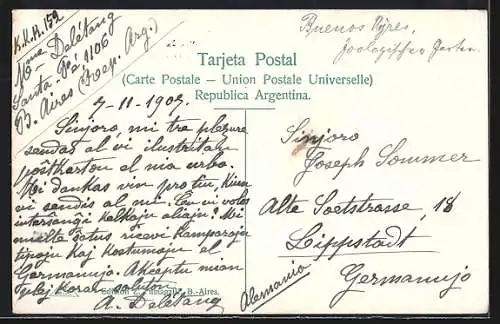 K.U.A. 152
Mme Delétang
Santa-Fé 1106
B. Aires (Rep. Arg.)
Buenos Ayres,
Zoologischer Garten
Tarjeta Postal
(Carte Postale – Union Postale Universelle)
Republica Argentina.
7-11-1907.
Sinjoro, mi tre plezure
sendas al vi ilustritan
poŝtkarton el mia urbo.
Mi dankas vin pro tiu, kiun
vi sendis al mi. Ĉu vi volas
interŝanĝi kelkajn aliajn? Mi
multe ŝatus ricevi kamparajn
tipojn kaj kostumojn el
Germanujo. Akceptu mian
plej koran saluton
A. Delétang
B.-Aires.
Sinjoro
Joseph Sommer
Alte Soetstrasse, 18
Lippstadt
Germanujo
Alemania